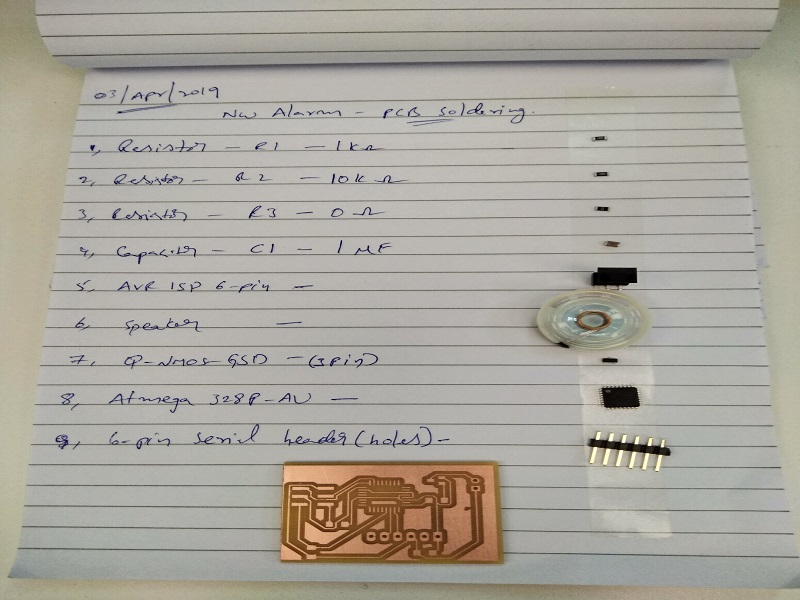 03/Apr/2019
NW Alarm - PCB Soldering.
1, Resistor - R1 - 1KΩ
2, Resistor - R2 - 10KΩ
3, Resistor - R3 - 0Ω
4, Capacitor - C1 - 1 MF
5, AVR ISP 6-pin -
6, Speaker -
7, Q-NMOS-GSD - (3pin)
8, Atmega 328P-AU -
9, 6-pin serial header (holes) -